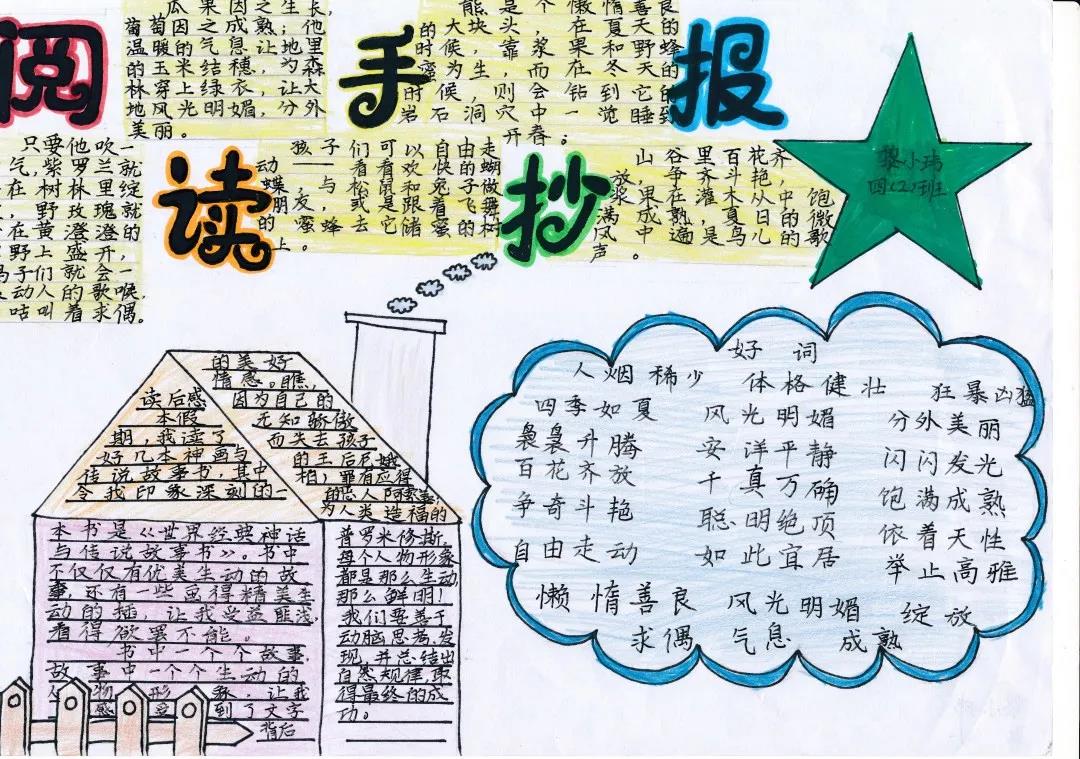 阅
读
手
抄
报
瓜果因之生长,
葡萄因之成熟;他
温暖的气息让地里
的玉米结穗,为森
林穿上绿衣,让大
地风光明媚,分外
美丽。
只要他吹一
气,紫罗兰就
在树林里绽
野玫瑰就
在黄澄澄的
野上盛开,
子们就会一
动人的歌喉,
咕叫着求偶。
孩子们可以自由的走
动——看看欢快的蝴
蝶,与松鼠和兔子做
朋友,或是跟着飞舞
的蜜蜂去它储蜜的树
上。
山谷里百花齐
放,争奇斗艳,中饱
浆果在灌木从中的
满成熟,真是日的微
风中遍鸟儿的歌
声。
黎小玮
四(2)班
读后感
本假
期,我读了
好几本神画与
传说故事书,其中
令我印象深刻的
本书是《世界经典神话
与传说故事书》。书中
不仅仅有优美生动的故
事,还有一些画得精美生
动的插,让我受益匪浅,
看得欲罢不能。
书中一个个故事,
故事中一个个生动的
人物形象,让我
感受到了文字
背后
的美好
情感。瞧,
因为自己的
无知骄傲
而失去孩子
的王后尼娥
柏,罪有应得
为人类造福的
普罗米修斯,
每个人物形象
都是那么生动,
那么鲜明!
我们要善于
动脑思考,发
现并总结出
自然规律,取
得最终的成
功。
好词
人烟稀少 体格健壮 狂暴凶猛
四季如夏 风光明媚 分外美丽
袅袅升腾 安洋平静 闪闪发光
百花齐放 千真万确 饱满成熟
争奇斗艳 聪明绝顶 依着天性
自由走动 如此宜居 举止高雅
懒惰善良 风光明媚 绽放
求偶 气息 成熟